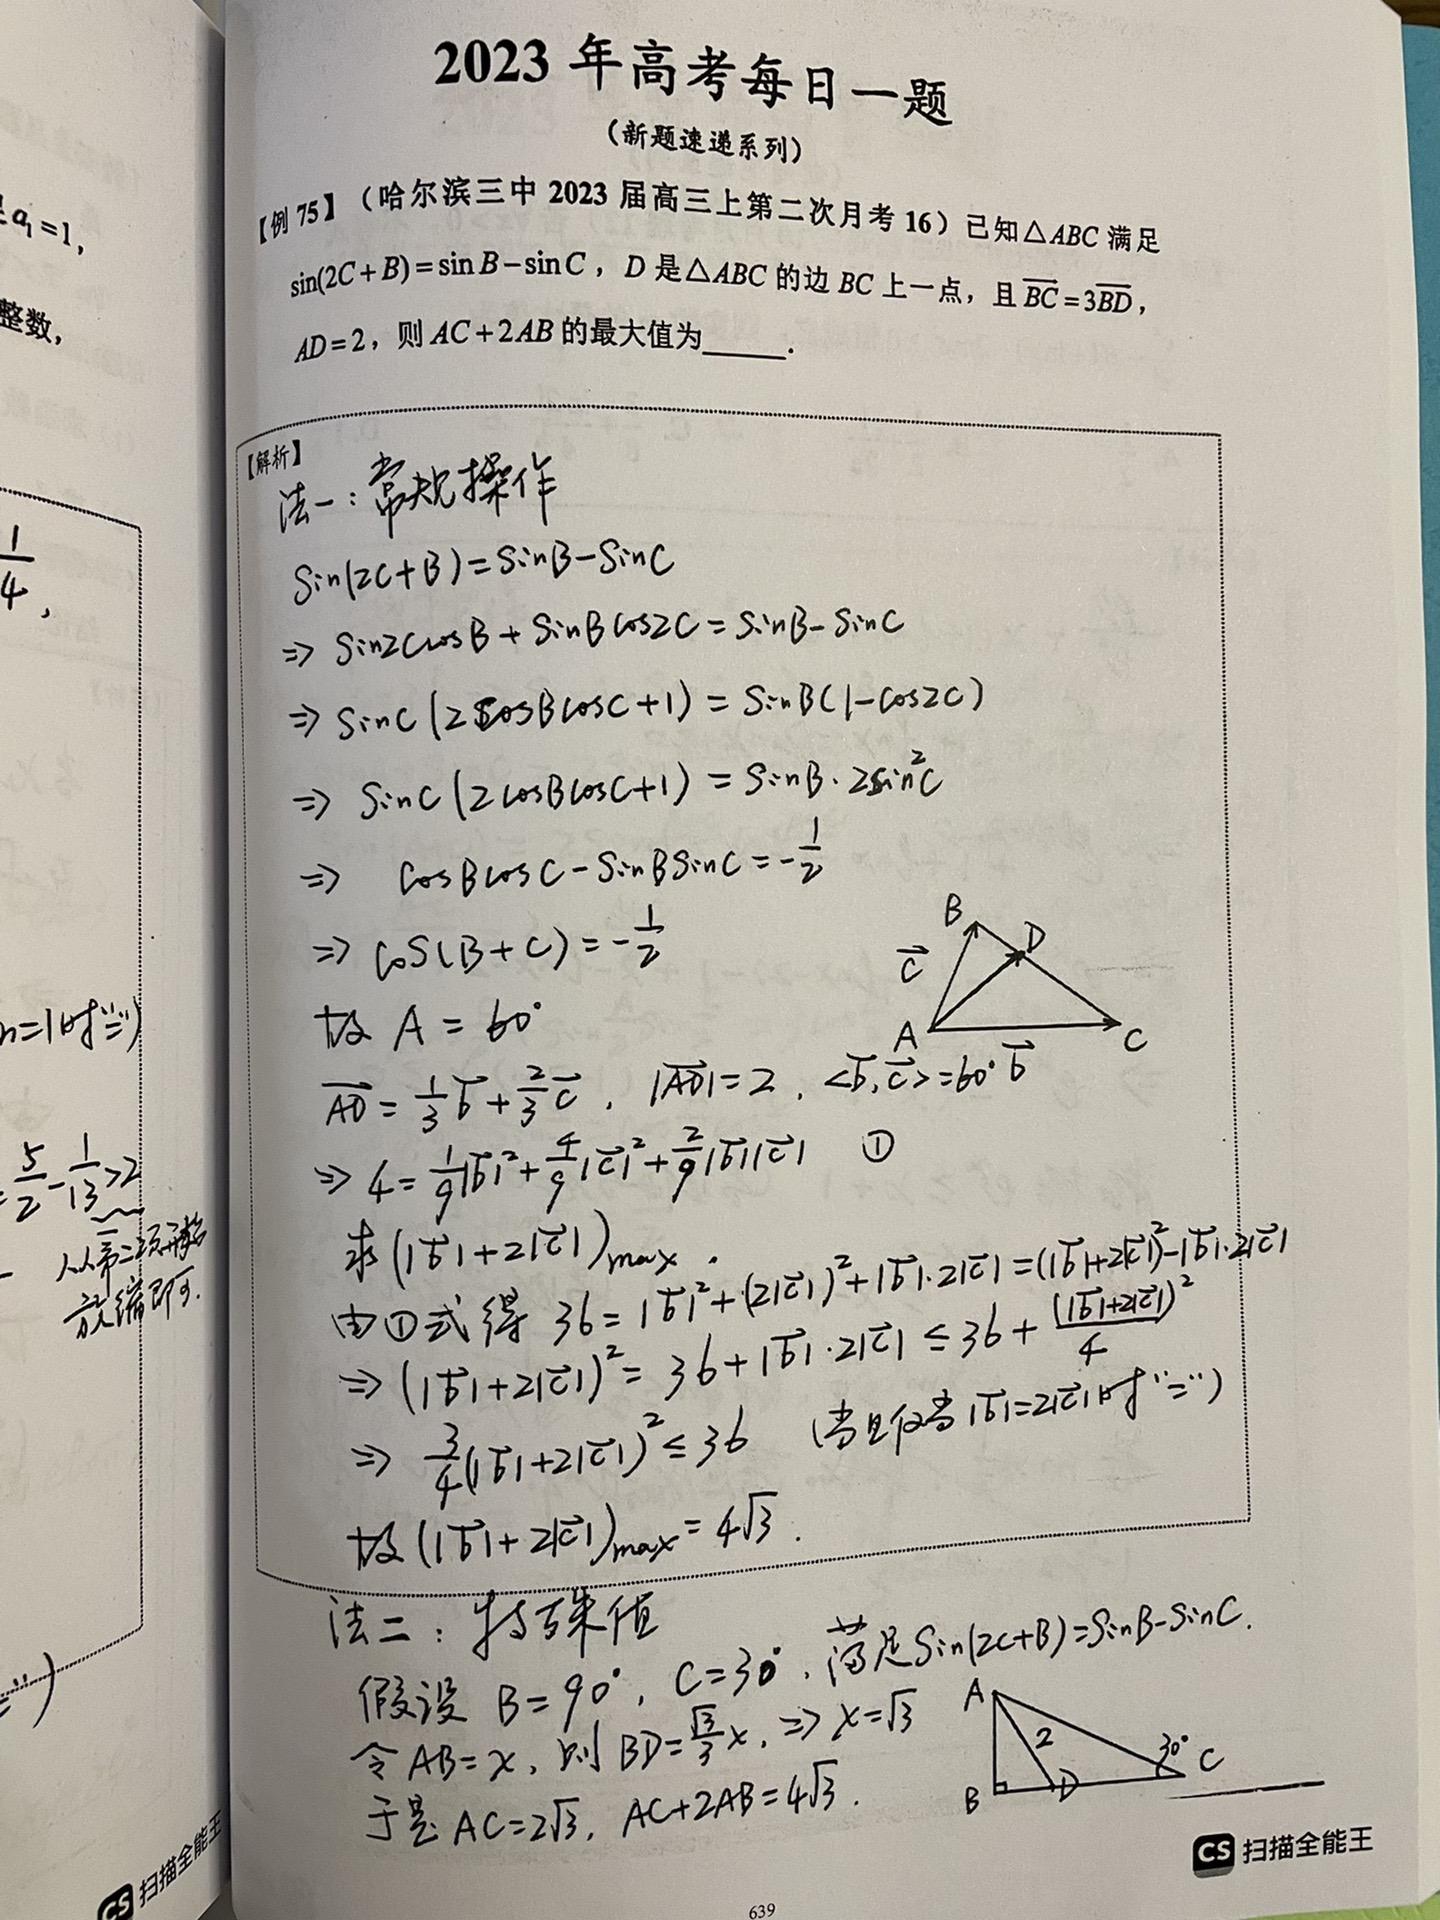 是a₁=1,
整数,
1/4,
n=1时"=")
=5/2-1/13>2
从第二项开始
放缩即可.
=")
CS 扫描全能王
2023 年高考每日一题
(新题速递系列)
【例 75】(哈尔滨三中 2023 届高三上第二次月考 16) 已知△ABC 满足
sin(2C+B)=sin B-sin C, D 是△ABC 的边 BC 上一点, 且 \overline{BC}=3\overline{BD},
AD=2, 则 AC+2AB 的最大值为_____.
【解析】
法一: 常规操作
Sin(2C+B)=SinB-SinC
⇒ Sin2CcosB+SinBcos2C=SinB-SinC
⇒ SinC(2cosBcosC+1)=SinB(1-cos2C)
⇒ SinC(2cosBcosC+1)=SinB·2sin²C
⇒ cosBcosC-SinBSinC=-1/2
⇒ cos(B+C)=-1/2
故 A=60°
B
D
\vec{c}
A
C
\vec{b}
\overrightarrow{AD}=1/3\vec{b}+2/3\vec{c}, |\overrightarrow{AD}|=2, <\vec{b},\vec{c}>=60°
⇒ 4=1/9|\vec{b}|²+4/9|\vec{c}|²+2/9|\vec{b}||\vec{c}| ①
求(|\vec{b}|+2|\vec{c}|)max.
由①式得 36=|\vec{b}|²+(2|\vec{c}|)²+|\vec{b}|·2|\vec{c}|=(|\vec{b}|+2|\vec{c}|)²-|\vec{b}|·2|\vec{c}|
⇒ (|\vec{b}|+2|\vec{c}|)²=36+|\vec{b}|·2|\vec{c}|≤36+(|\vec{b}|+2|\vec{c}|)²/4
⇒ 3/4(|\vec{b}|+2|\vec{c}|)²≤36 (当且仅当|\vec{b}|=2|\vec{c}|时"=")
故(|\vec{b}|+2|\vec{c}|)max=4√3.
法二: 特殊值
假设 B=90°, C=30°, 满足Sin(2C+B)=SinB-SinC.
令AB=x, 则BD=√3/3x, ⇒ x=√3
于是AC=2√3, AC+2AB=4√3.
A
2
30°
C
B
D
CS 扫描全能王
639